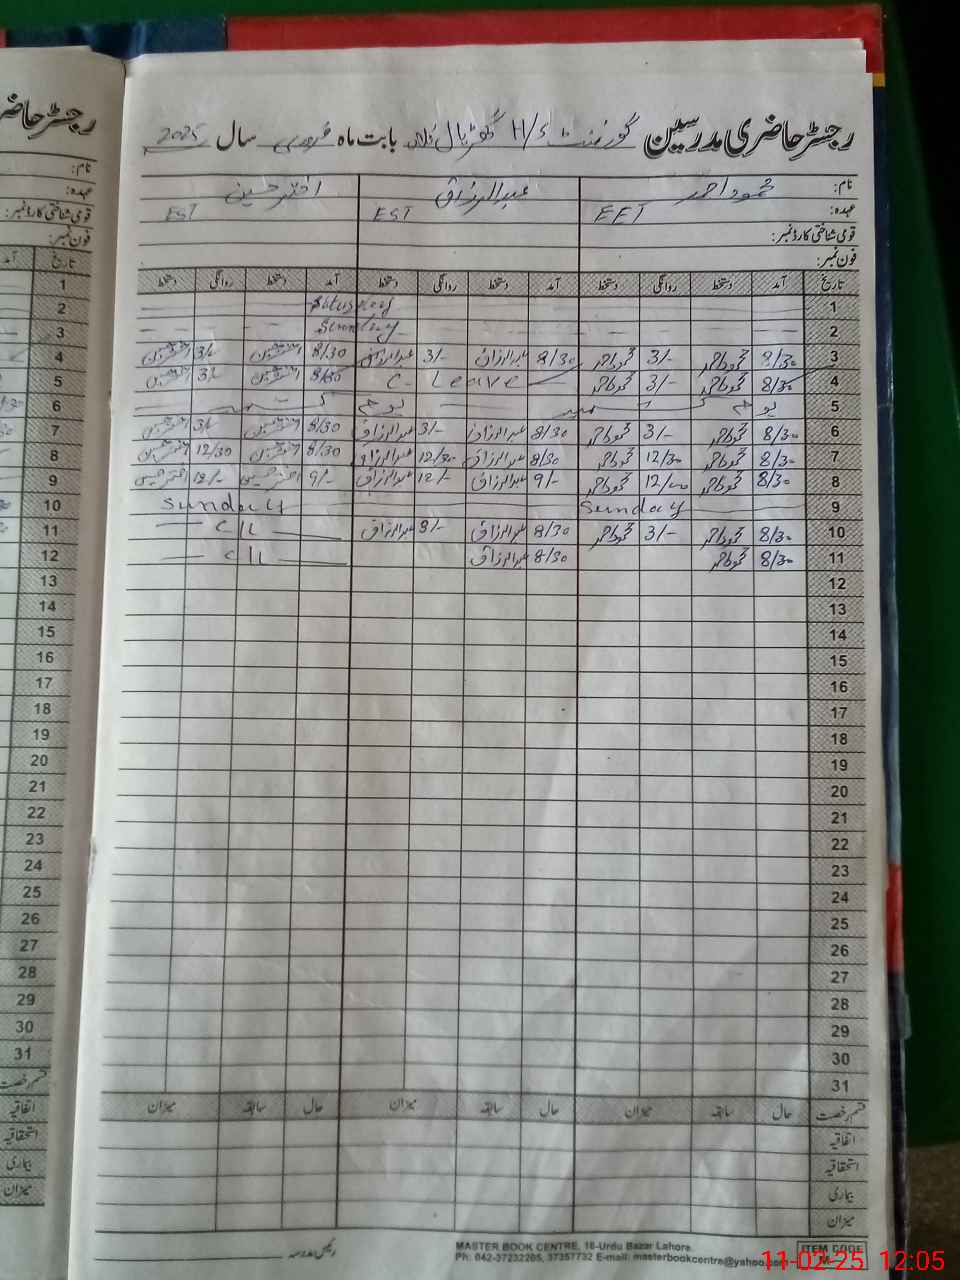 رجسٹر حاضری مدرسین گورنمنٹ H/S گھڑیال کلاں بابت ماہ فروری سال 2025
نام: محمود احمد عبدالرزاق اختر حسین
عہدہ: EET EST EST
قومی شناختی کارڈ نمبر:
فون نمبر:
تاریخ آمد دستخط روانگی دستخط آمد دستخط روانگی دستخط آمد دستخط روانگی دستخط
1
2 Sunday
3 8/30 محمود احمد 3/- محمود احمد 8/30 عبدالرزاق 3/- عبدالرزاق 8/30 اختر حسین 3/- اختر حسین
4 8/30 محمود احمد 3/- محمود احمد C- Leave 8/30 اختر حسین 3/- اختر حسین
5 یوم یوم
6 8/30 محمود احمد 3/- محمود احمد 8/30 عبدالرزاق 3/- عبدالرزاق 8/30 اختر حسین 3/- اختر حسین
7 8/30 محمود احمد 12/30 محمود احمد 8/30 عبدالرزاق 12/30 عبدالرزاق 8/30 اختر حسین 12/30 اختر حسین
8 8/30 محمود احمد 12/00 محمود احمد 9/- عبدالرزاق 12/- عبدالرزاق 9/- اختر حسین 12/- اختر حسین
9 Sunday Sunday
10 8/30 محمود احمد 3/- محمود احمد 8/30 عبدالرزاق 3/- عبدالرزاق
11 8/30 محمود احمد 8/30 عبدالرزاق
12
13
14
15
16
17
18
19
20
21
22
23
24
25
26
27
28
29
30
31
قسم رخصت حال سابقہ میزان حال سابقہ میزان حال سابقہ میزان
اتفاقیہ
استحقاقیہ
بیماری
میزان
رئیس مدرسہ
MASTER BOOK CENTRE, 16-Urdu Bazar Lahore.
Ph: 042-37232205, 37357732 E-mail: masterbookcentre@yahoo.com
ITEM CODE
11-02-25 12:05
رجسٹر حاضر
نام:
عہدہ:
قومی شناختی کارڈ نمبر:
فون نمبر:
تاریخ آمد
1
2
3
4
5
6
7
8
9
10
11
12
13
14
15
16
17
18
19
20
21
22
23
24
25
26
27
28
29
30
31
قسم رخصت
اتفاقیہ
استحقاقیہ
بیماری
میزان